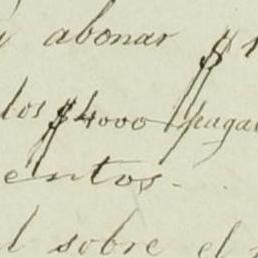 abonar $
los $4000 paga
entos.
l sobre el